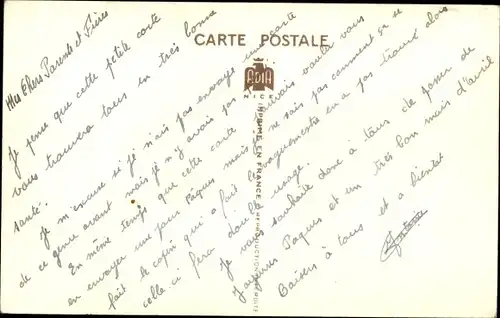 Mes Chers Parents et Frères
CARTE POSTALE
ADIA
NICE
IMPRIMÉ EN FRANCE
REPRODUCTION
Je pense que cette petite carte
vous trouvera tous en très bonne
santé.
Je m'excuse si je n'ais pas envoyé une carte
de ce genre avant mais je n'y avais pas
En même temps que cette carte je voulais vous
en envoyer une pour Pâques mais je ne sais pas comment ça se
fait le copin qui a fait la en a pas trouvé alors
celle-ci fera double usage.
Je vous souhaite donc à tous de passer de
Joyeuses Paques et un très bon mois d'avril
Baisers à tous et a bientôt